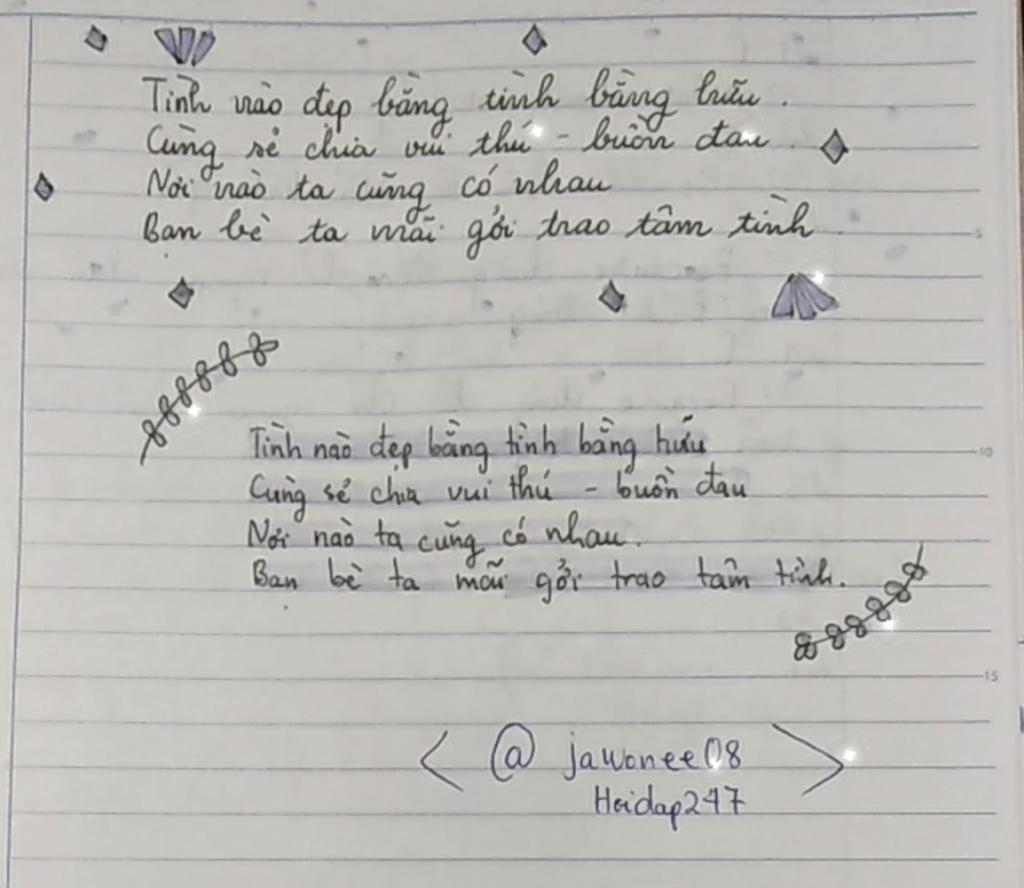 Tình nào đẹp bằng tình bằng hữu.
Cùng sẻ chia vui thú - buồn đau
Nơi nào ta cũng có nhau
Bạn bè ta mãi gởi trao tâm tình
Tình nào đẹp bằng tình bằng hữu
Cùng sẻ chia vui thú - buồn đau
Nơi nào ta cũng có nhau.
Bạn bè ta mãi gởi trao tâm tình.
5
10
15
< @ jawonee08 >
Hoidap247